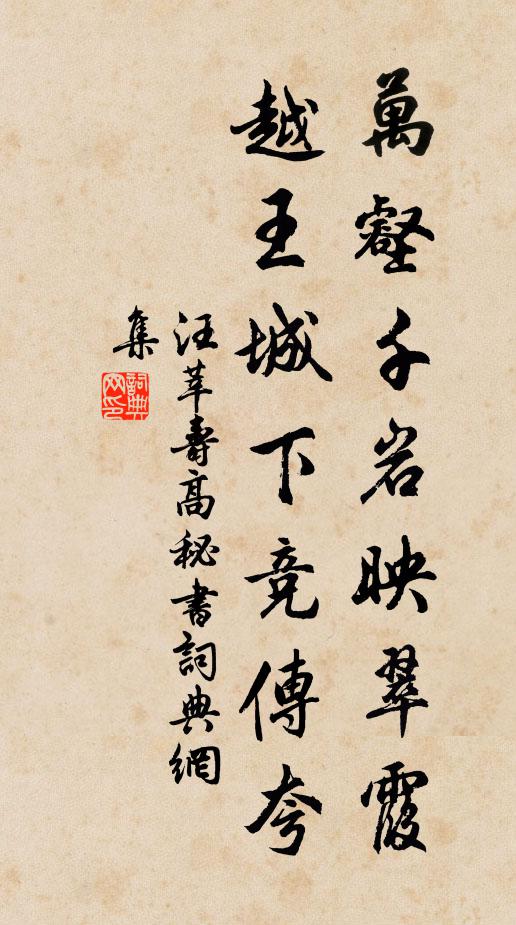 萬壑千岩映翠霞
越王城下竞傳夸
汪莘壽高秘書詞典網
集
詞典網印